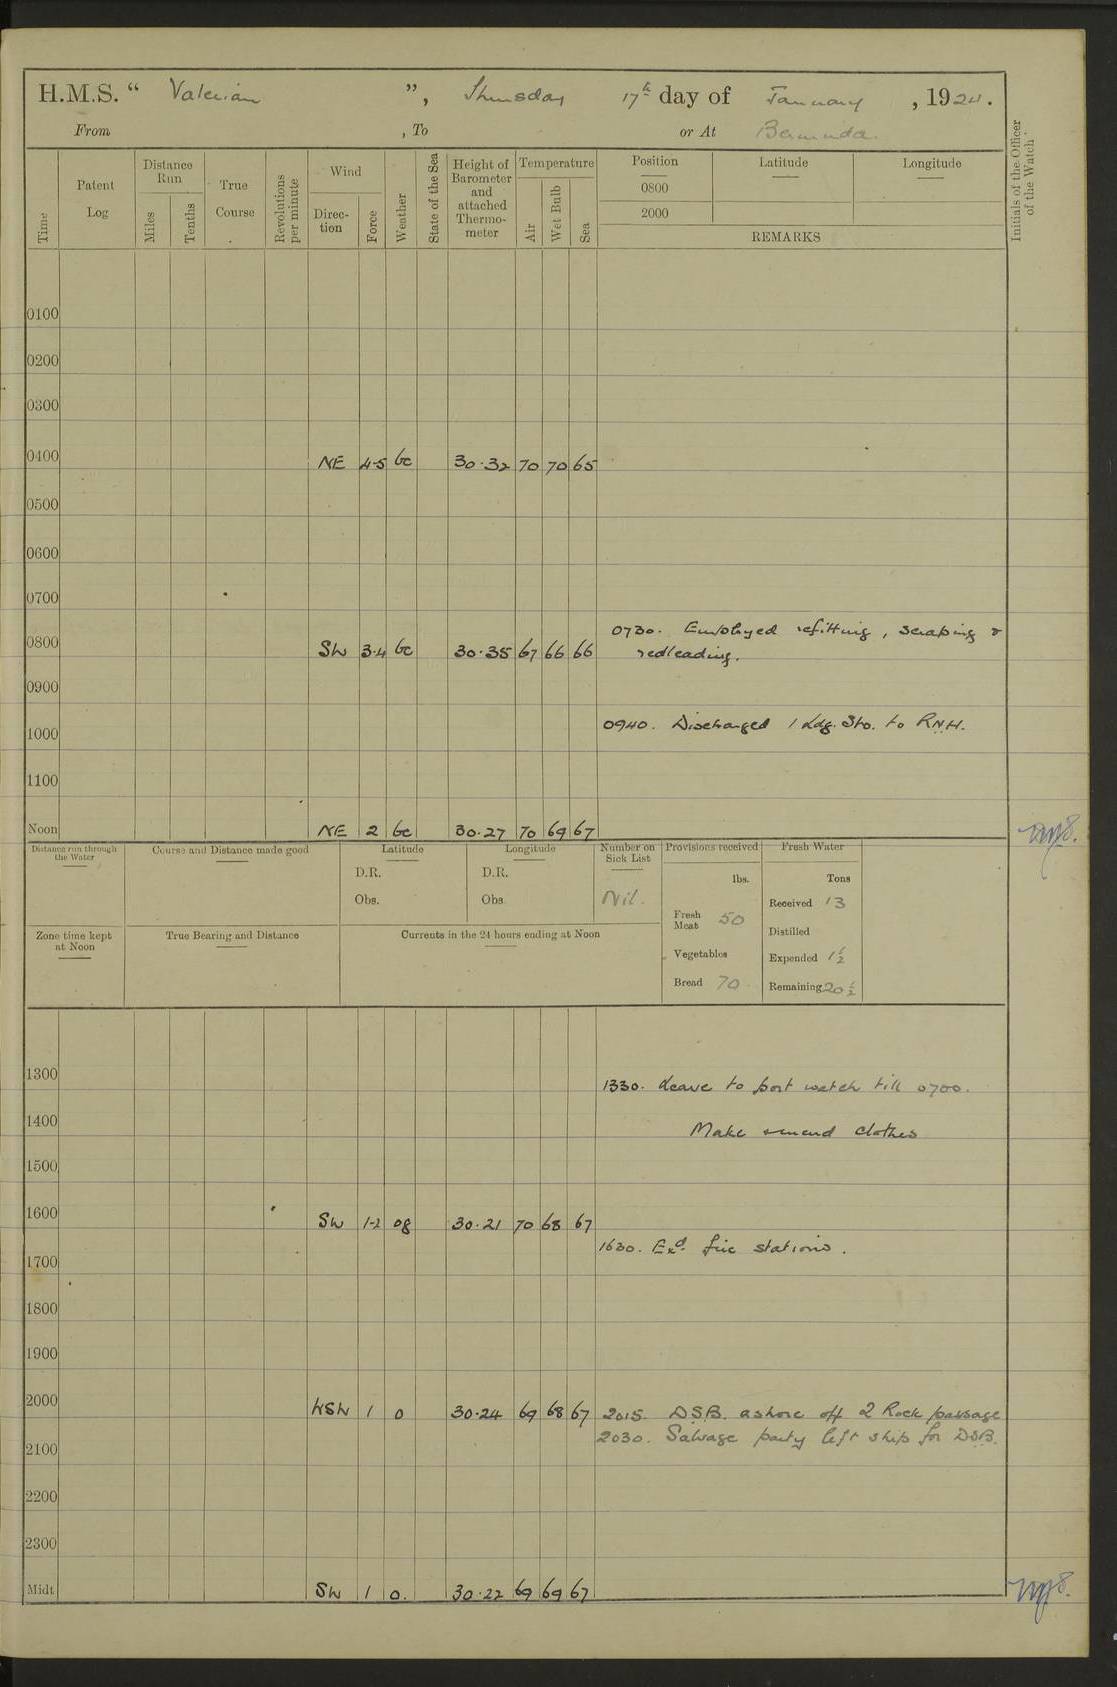 H.M.S. “ Valerian ”, Thursday 17th day of January, 1924.
From , To or At Bermuda.
Time
Patent Log
Distance Run
Miles
Tenths
True Course
Revolutions per minute
Wind
Direction
Force
Weather
State of the Sea
Height of Barometer and attached Thermometer
Temperature
Air
Wet Bulb
Sea
Position
0800
2000
Latitude
Longitude
REMARKS
Initials of the Officer of the Watch
0100
0200
0300
0400 NE 4-5 bc 30.32 70 70 65
0500
0600
0700
0730. Employed refitting, scraping &
0800 SW 3.4 bc 30.35 67 66 66 redleading.
0900
0940. Discharged 1 Ldg. Sto. to R.N.H.
1000
1100
Noon NE 2 bc 30.27 70 69 67
Distance run through the Water
Course and Distance made good
Latitude
D.R.
Obs.
Longitude
D.R.
Obs.
Number on Sick List
Nil.
Provisions received
lbs.
Fresh Meat 50
Vegetables
Bread 70
Fresh Water
Tons
Received 13
Distilled
Expended 1½
Remaining 20½
Zone time kept at Noon
True Bearing and Distance
Currents in the 24 hours ending at Noon
1300
1330. Leave to port watch till 0700.
1400 Make & mend clothes
1500
1600 SW 1-2 og 30.21 70 68 67
1630. Exd. fire stations.
1700
1800
1900
2000 WSW 1 o 30.24 69 68 67 2015. D.S.B. ashore off 2 Rock passage
2030. Salvage party left ship for D.S.B.
2100
2200
2300
Midt. SW 1 o. 30.22 69 69 67